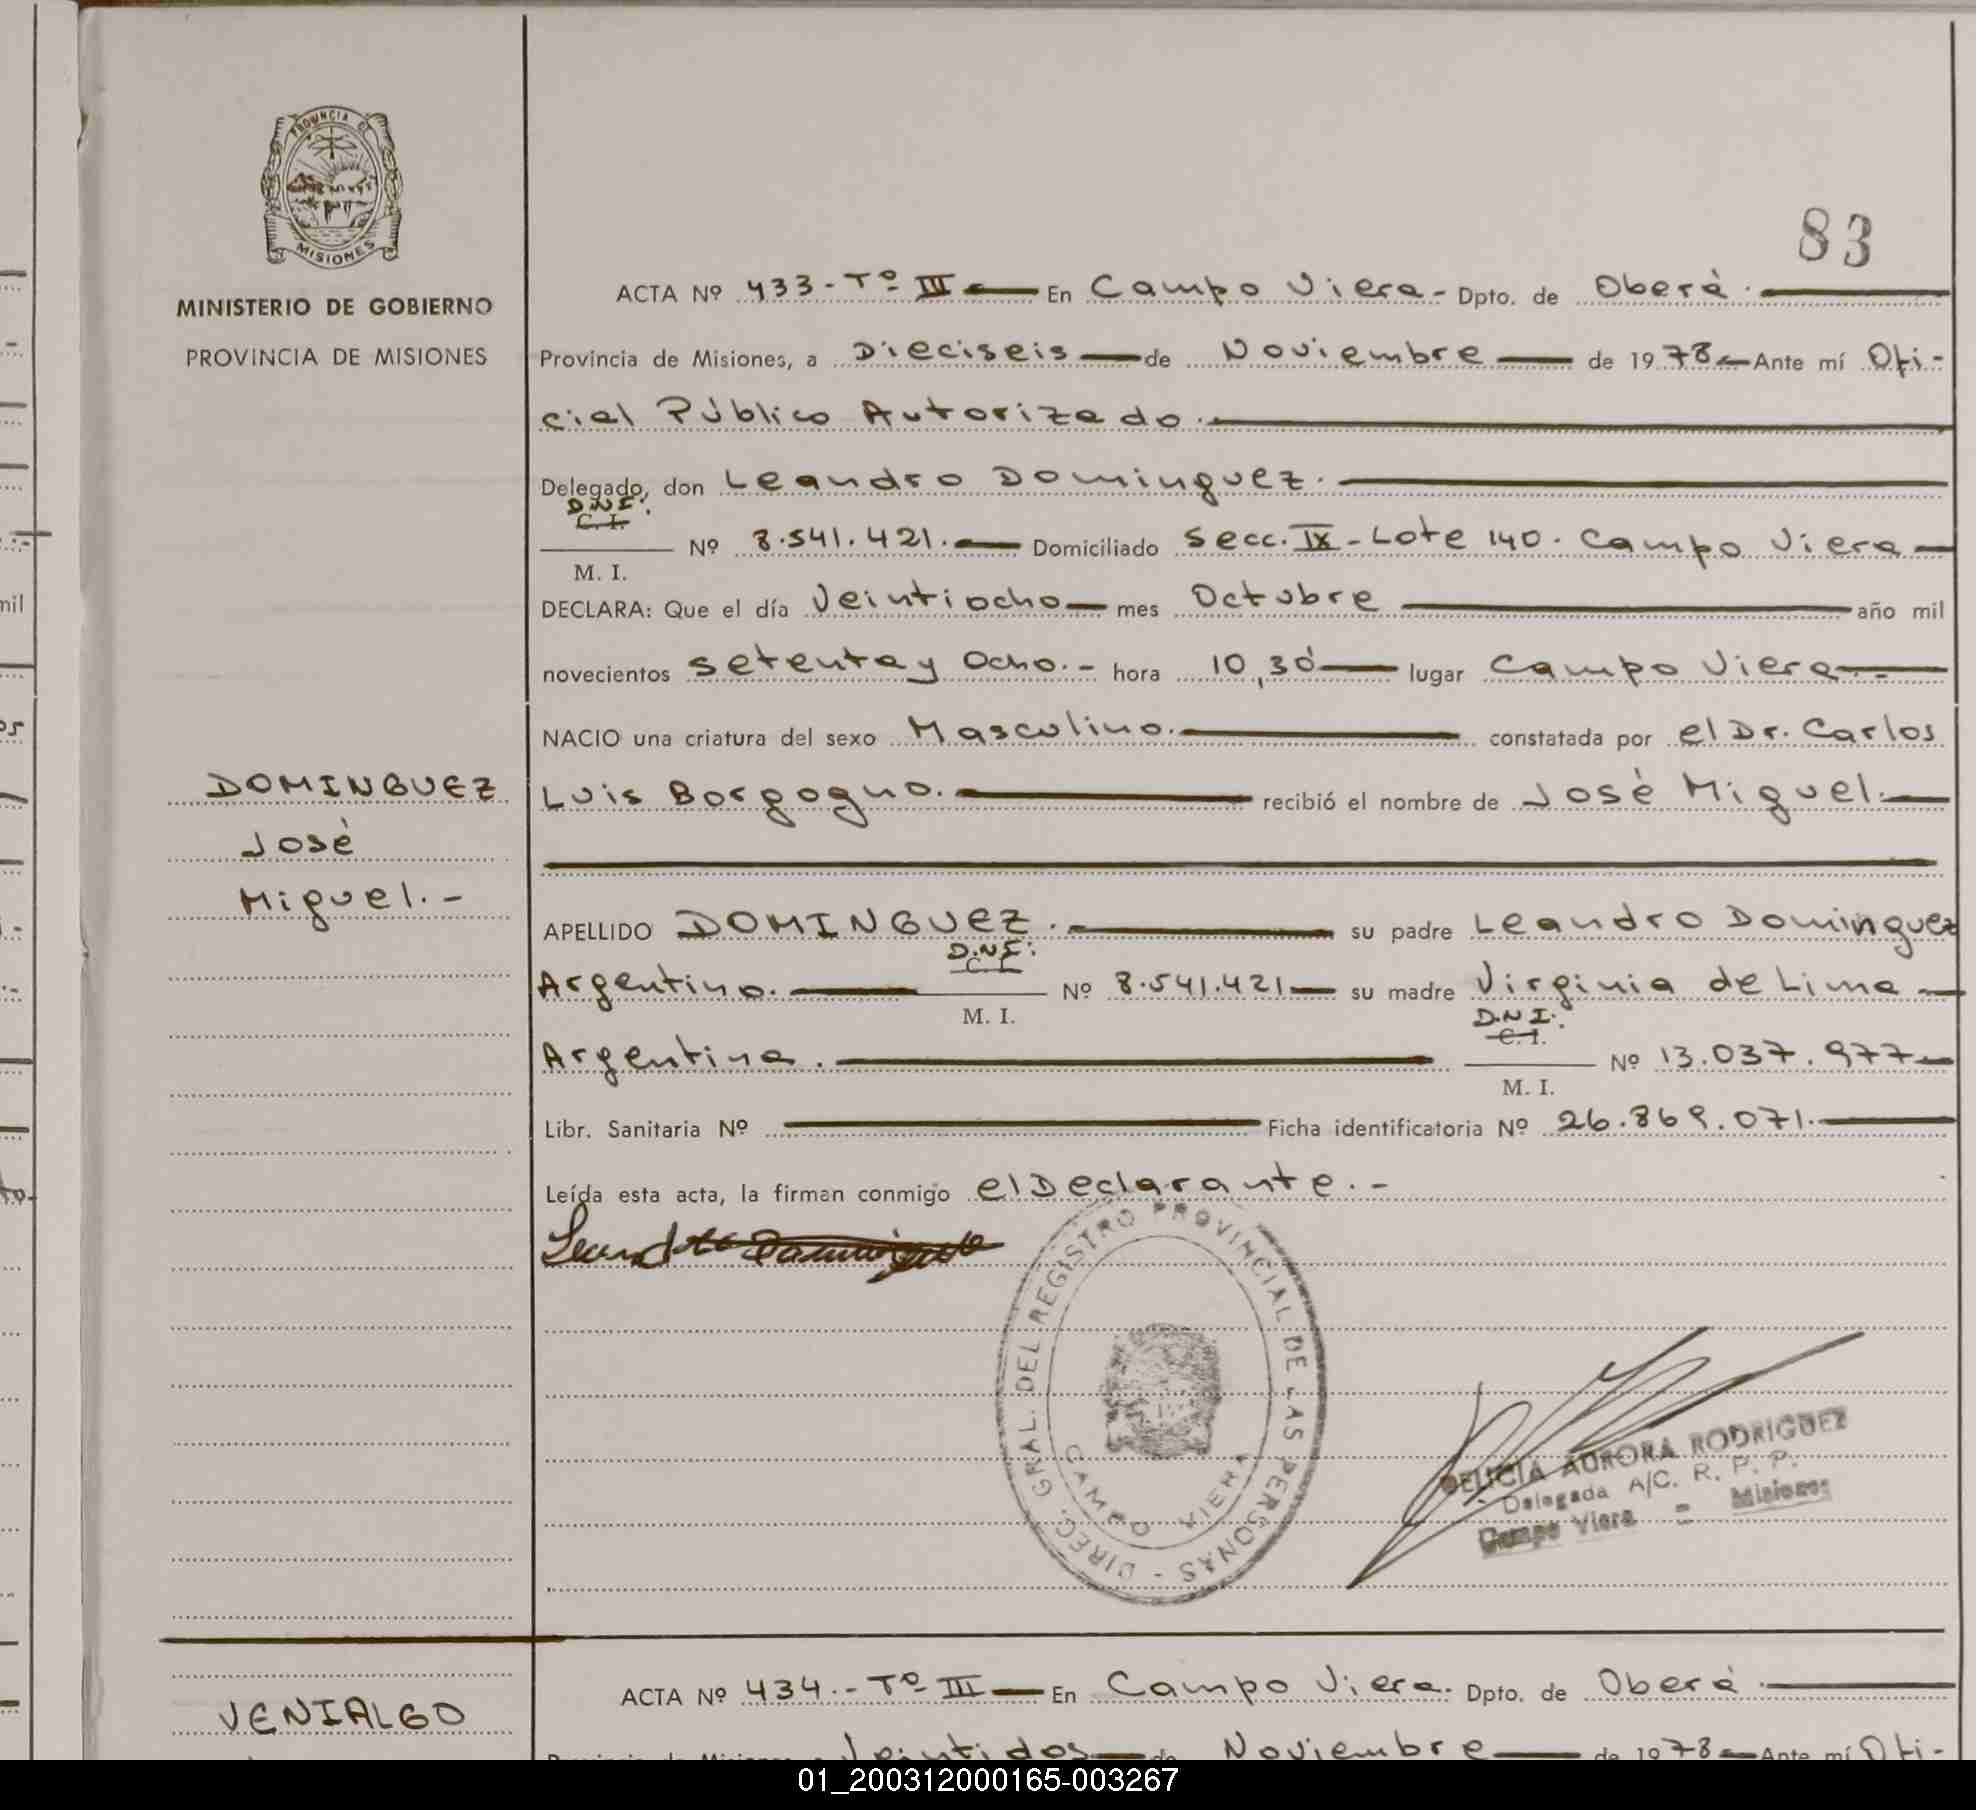 PROVINCIA DE
MISIONES
MINISTERIO DE GOBIERNO
PROVINCIA DE MISIONES
83
ACTA Nº 433.- Tº III En Campo Viera.- Dpto. de Oberá.
Provincia de Misiones, a Dieciseis de Noviembre de 1978 Ante mí Ofi-
cial Público Autorizado.
Delegado, don Leandro Dominguez.
D.N.I.
C. I.
Nº 8.541.421. Domiciliado Secc. IX - Lote 140. Campo Viera
M. I.
DECLARA: Que el día Veintiocho mes Octubre año mil
novecientos setenta y Ocho.- hora 10,30 lugar Campo Viera.-
NACIO una criatura del sexo Masculino. constatada por el Dr. Carlos
Luis Borgogno. recibió el nombre de José Miguel.
DOMINGUEZ
José
Miguel.-
APELLIDO DOMINGUEZ. su padre Leandro Dominguez
D.N.I.
C. I.
Argentino. Nº 8.541.421 su madre Virginia de Lima
M. I.
D.N.I.
C. I.
Argentina. Nº 13.037.977
M. I.
Libr. Sanitaria Nº Ficha identificatoria Nº 26.869.071.
Leída esta acta, la firman conmigo el Declarante.-
DIREC. GRAL. DEL REGISTRO PROVINCIAL DE LAS PERSONAS -
CAMPO VIERA
DELICIA AURORA RODRIGUEZ
Delegada A/C. R. P. P.
Campo Viera = Misiones
ACTA Nº 434.- Tº III En Campo Viera. Dpto. de Oberá.
VENIALGO
Provincia de Misiones, a Veintidos de Noviembre de 1978 Ante mí Ofi-
01_200312000165-003267